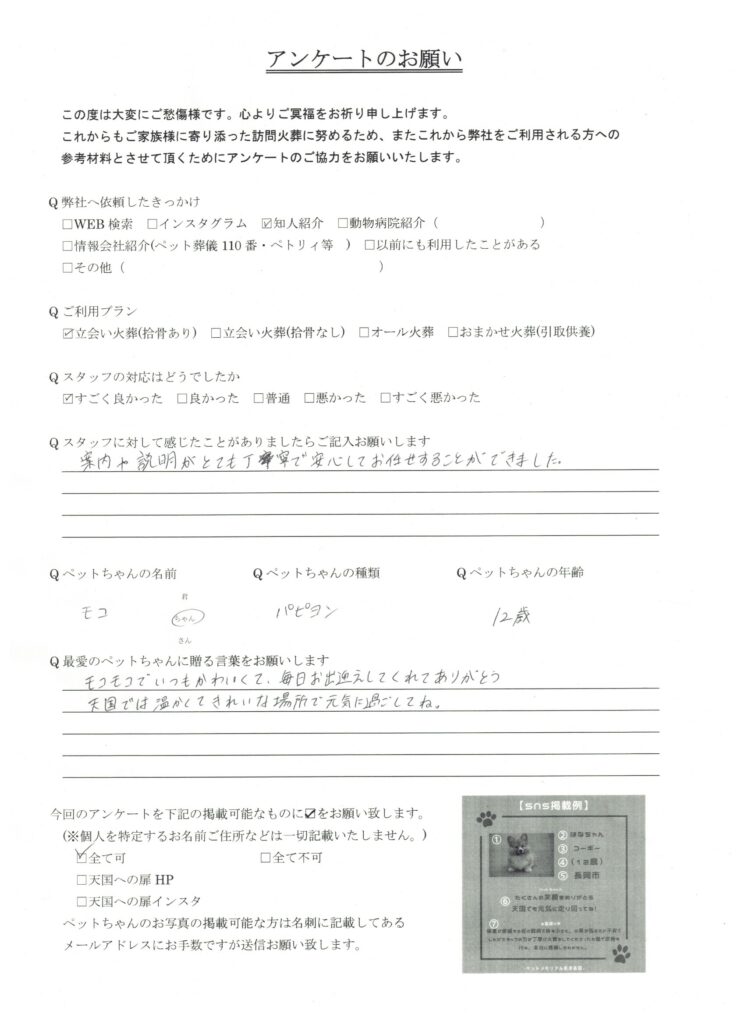 アンケートのお願い
この度は大変にご愁傷様です。心よりご冥福をお祈り申し上げます。
これからもご家族様に寄り添った訪問火葬に努めるため、またこれから弊社をご利用される方への
参考材料とさせて頂くためにアンケートのご協力をお願いいたします。
Q 弊社へ依頼したきっかけ
□WEB 検索 □インスタグラム ☑知人紹介 □動物病院紹介（ ）
□情報会社紹介(ペット葬儀 110 番・ペトリィ等 ) □以前にも利用したことがある
□その他（ ）
Q ご利用プラン
☑立会い火葬(拾骨あり) □立会い火葬(拾骨なし) □オール火葬 □おまかせ火葬(引取供養)
Q スタッフの対応はどうでしたか
☑すごく良かった □良かった □普通 □悪かった □すごく悪かった
Q スタッフに対して感じたことがありましたらご記入お願いします
案内や説明がとても丁寧で安心してお任せすることができました。
Q ペットちゃんの名前 Q ペットちゃんの種類 Q ペットちゃんの年齢
君
モコ ちゃん パピヨン 12歳
さん
Q 最愛のペットちゃんに贈る言葉をお願いします
モコモコでいつもかわいくて、毎日お出迎えしてくれてありがとう
天国では温かくてきれいな場所で元気に過ごしてね。
今回のアンケートを下記の掲載可能なものに☑をお願い致します。
(※個人を特定するお名前ご住所などは一切記載いたしません。)
☑全て可 □全て不可
□天国への扉 HP
□天国への扉インスタ
ペットちゃんのお写真の掲載可能な方は名刺に記載してある
メールアドレスにお手数ですが送信お願い致します。
【sns掲載例】
①
② はなちゃん
③ コーギー
④ (12歳)
⑤ 長岡市
⑥ たくさんの笑顔をありがとう
天国でも元気に走り回ってね!
⑦